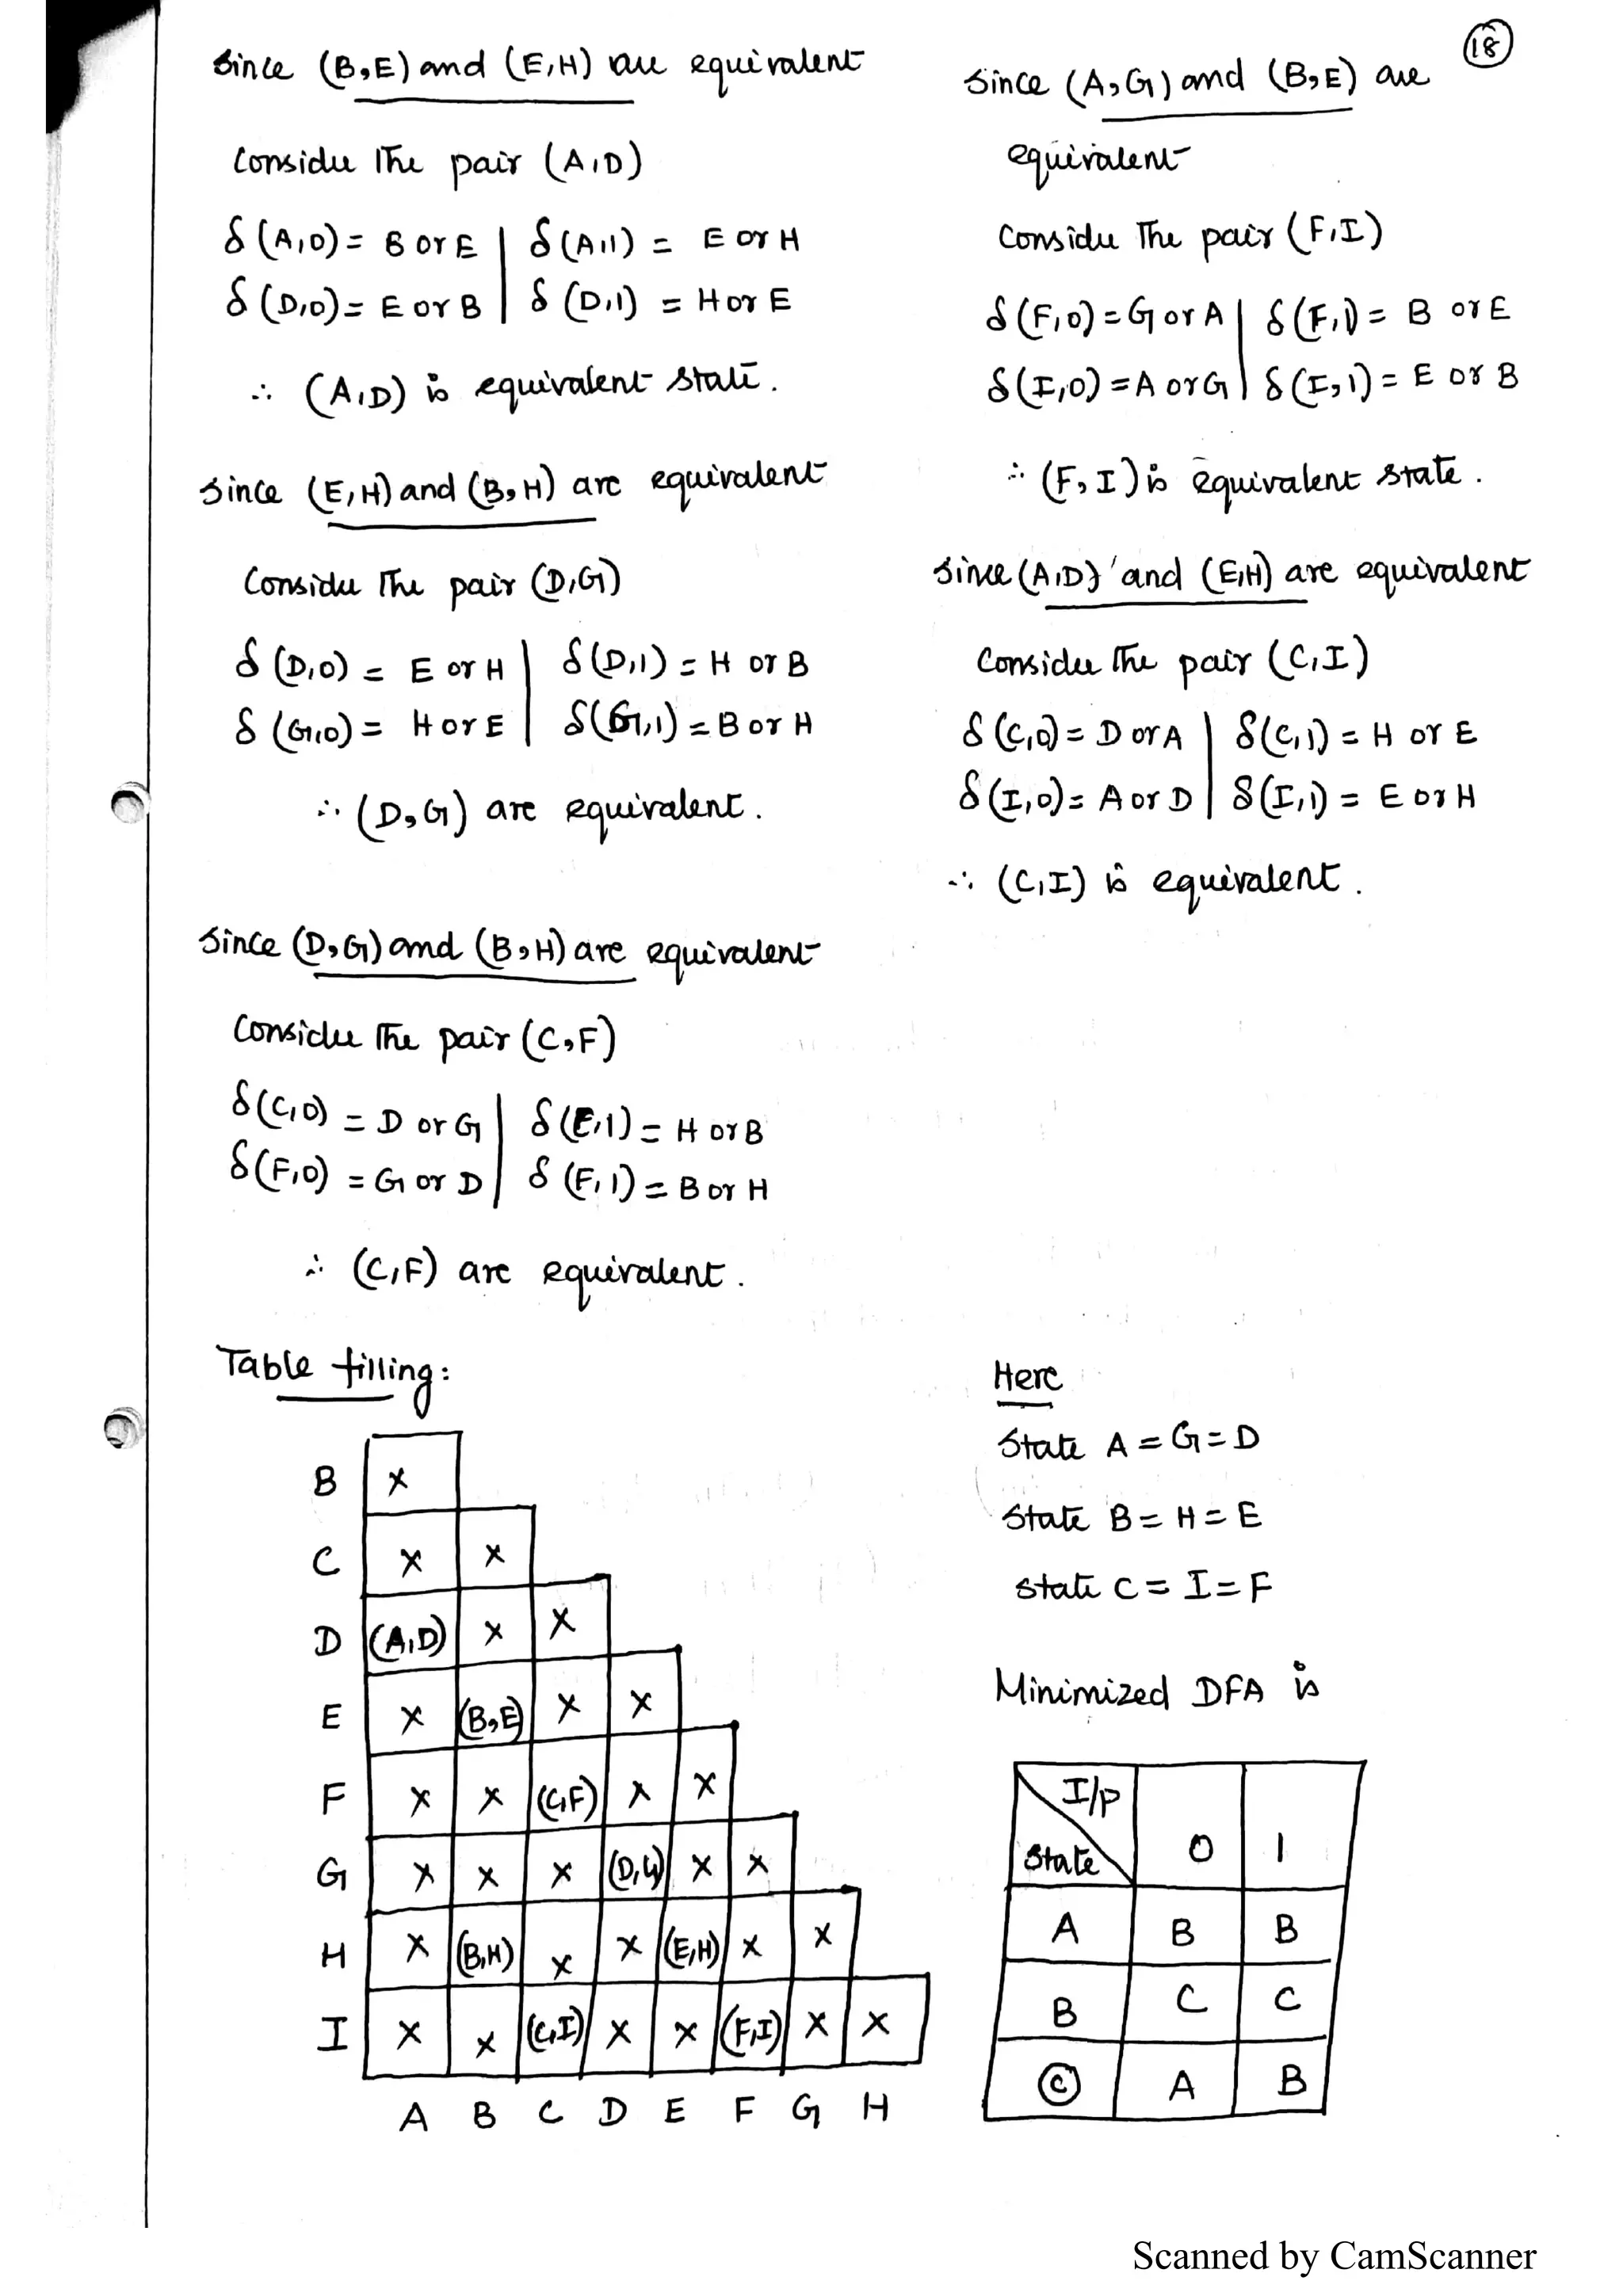 18
Since (B,E) and (E,H) are equivalent
Consider the pair (A,D)
δ(A,0) = B or E | δ(A,1) = E or H
δ(D,0) = E or B | δ(D,1) = H or E
∴ (A,D) is equivalent state.
Since (E,H) and (B,H) are equivalent
Consider the pair (D,G)
δ(D,0) = E or H | δ(D,1) = H or B
δ(G,0) = H or E | δ(G,1) = B or H
∴ (D,G) are equivalent.
Since (D,G) and (B,H) are equivalent
Consider the pair (C,F)
δ(C,0) = D or G | δ(E,1) = H or B
δ(F,0) = G or D | δ(F,1) = B or H
∴ (C,F) are equivalent.
Since (A,G) and (B,E) are
equivalent
Consider the pair (F,I)
δ(F,0) = G or A | δ(F,1) = B or E
δ(I,0) = A or G | δ(I,1) = E or B
∴ (F,I) is equivalent state.
Since (A,D) and (E,H) are equivalent
Consider the pair (C,I)
δ(C,0) = D or A | δ(C,1) = H or E
δ(I,0) = A or D | δ(I,1) = E or H
∴ (C,I) is equivalent.
Table filling:
B x
C x x
D (A,D) x x
E x (B,E) x x
F x x (C,F) x x
G x x x (D,G) x x
H x (B,H) x x (E,H) x x
I x x (C,I) x x (F,I) x x
A B C D E F G H
Here
State A = G = D
State B = H = E
State C = I = F
Minimized DFA is
I/p
State 0 1
A B B
B C C
C A B
Scanned by CamScanner